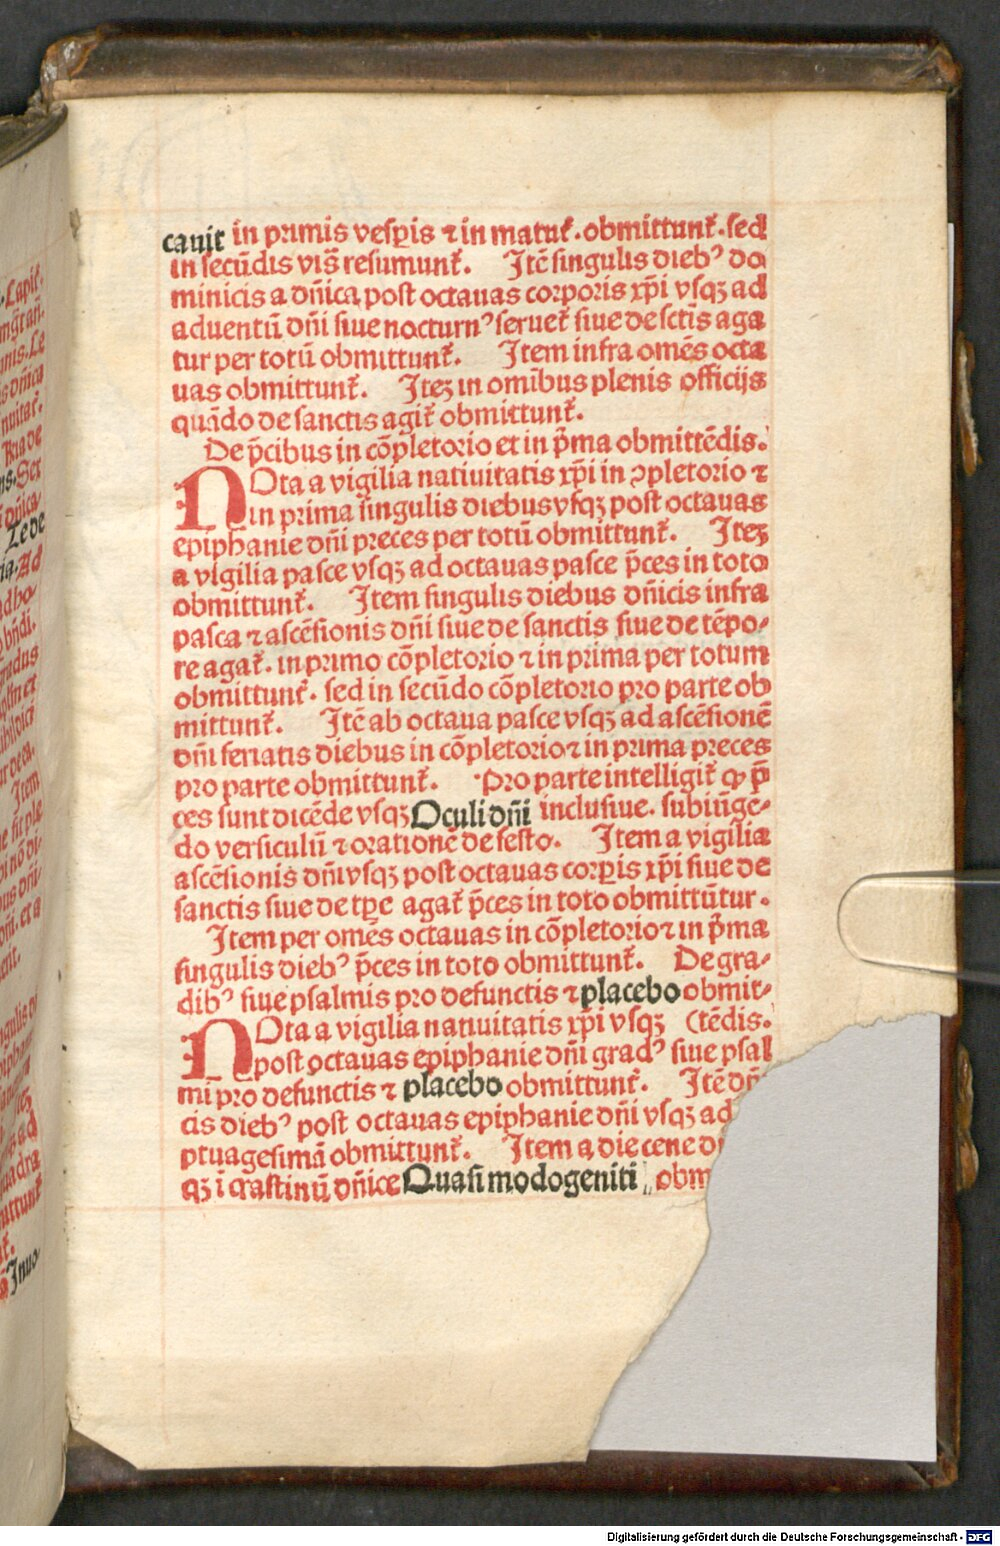 cauit in primis vesꝑis ⁊ in matut᷑. obmittunt᷑. sed
in secūdis vīs resumunt᷑. Itē singulis dieb⁹ do
minicis a dn̄ica post octauas corporis xp̄i vsqꝫ ad
aduentū dn̄i siue nocturn⁹ seruet᷑ siue de sctīs aga
tur per totū obmittunt᷑. Item infra omēs octa
uas obmittunt᷑. Iteꝫ in omībus plenis officijs
quādo de sanctis agit᷑ obmittunt᷑.
De p̄cibus in cōpletorio et in p̄ma obmittēdis.
NOta a vigilia natiuitatis xp̄i in ꝯpletorio ⁊
in prima singulis diebus vsqꝫ post octauas
epiphanie dn̄i preces per totū obmittunt᷑. Iteꝫ
a vigilia pasce vsqꝫ ad octauas pasce p̄ces in toto
obmittunt᷑. Item singulis diebus dn̄icis infra
pasca ⁊ ascēsionis dn̄i siue de sanctis siue de tēpo⸗
re agat᷑. in primo cōpletorio ⁊ in prima per totum
obmittunt᷑. sed in secūdo cōpletorio pro parte ob
mittunt᷑. Itē ab octaua pasce vsqꝫ ad ascēsionē
dn̄i feriatis diebus in cōpletorio ⁊ in prima preces
pro parte obmittunt᷑. Pro parte intelligit᷑ ꝙ p̄
ces sunt dicēde vsqꝫ Oculi dn̄i inclusiue. subiūge⸗
do versiculū ⁊ orationē de festo. Item a vigilia
ascēsionis dn̄i vsqꝫ post octauas corꝑis xp̄i siue de
sanctis siue de tꝑe agat᷑ p̄ces in toto obmittūtur.
Item per omēs octauas in cōpletorio ⁊ in p̄ma
singulis dieb⁹ p̄ces in toto obmittunt᷑. De gra⸗
dib⁹ siue psalmis pro defunctis ⁊ placebo obmit⸗
NOta a vigilia natiuitatis xp̄i vsqꝫ (tēdis.
post octauas epiphanie dn̄i grad⁹ siue psal
mi pro defunctis ⁊ placebo obmittunt᷑. Itē dn̄
cis dieb⁹ post octauas epiphanie dn̄i vsqꝫ ad
ptuagesimā obmittunt᷑. Item a die cene d
qꝫ ī crastinū dn̄ice Quasi modogeniti obm
Digitalisierung gefördert durch die Deutsche Forschungsgemeinschaft - DFG